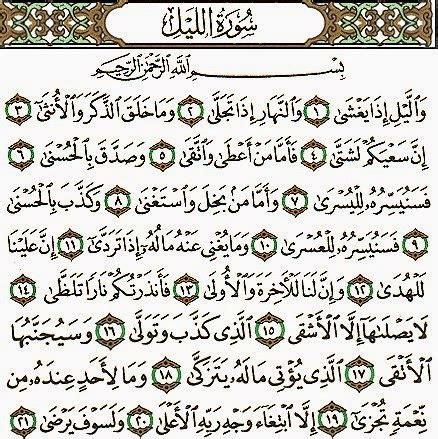 سُورَةُ اللَّيْلِ
بِسْمِ اللَّهِ الرَّحْمَٰنِ الرَّحِيمِ
وَالَّيْلِ إِذَا يَغْشَىٰ ١ وَالنَّهَارِ إِذَا تَجَلَّىٰ ٢ وَمَا خَلَقَ الذَّكَرَ وَالْأُنثَىٰ ٣
إِنَّ سَعْيَكُمْ لَشَتَّىٰ ٤ فَأَمَّا مَنْ أَعْطَىٰ وَاتَّقَىٰ ٥ وَصَدَّقَ بِالْحُسْنَىٰ ٦
فَسَنُيَسِّرُهُ لِلْيُسْرَىٰ ٧ وَأَمَّا مَن بَخِلَ وَاسْتَغْنَىٰ ٨ وَكَذَّبَ بِالْحُسْنَىٰ
٩ فَسَنُيَسِّرُهُ لِلْعُسْرَىٰ ١٠ وَمَا يُغْنِي عَنْهُ مَالُهُ إِذَا تَرَدَّىٰ ١١ إِنَّ عَلَيْنَا
لَلْهُدَىٰ ١٢ وَإِنَّ لَنَا لَلْآخِرَةَ وَالْأُولَىٰ ١٣ فَأَنذَرْتُكُمْ نَارًا تَلَظَّىٰ ١٤
لَا يَصْلَىٰهَا إِلَّا الْأَشْقَى ١٥ الَّذِي كَذَّبَ وَتَوَلَّىٰ ١٦ وَسَيُجَنَّبُهَا
الْأَتْقَى ١٧ الَّذِي يُؤْتِي مَالَهُ يَتَزَكَّىٰ ١٨ وَمَا لِأَحَدٍ عِندَهُ مِن
نِّعْمَةٍ تُجْزَىٰ ١٩ إِلَّا ابْتِغَاءَ وَجْهِ رَبِّهِ الْأَعْلَىٰ ٢٠ وَلَسَوْفَ يَرْضَىٰ ٢١